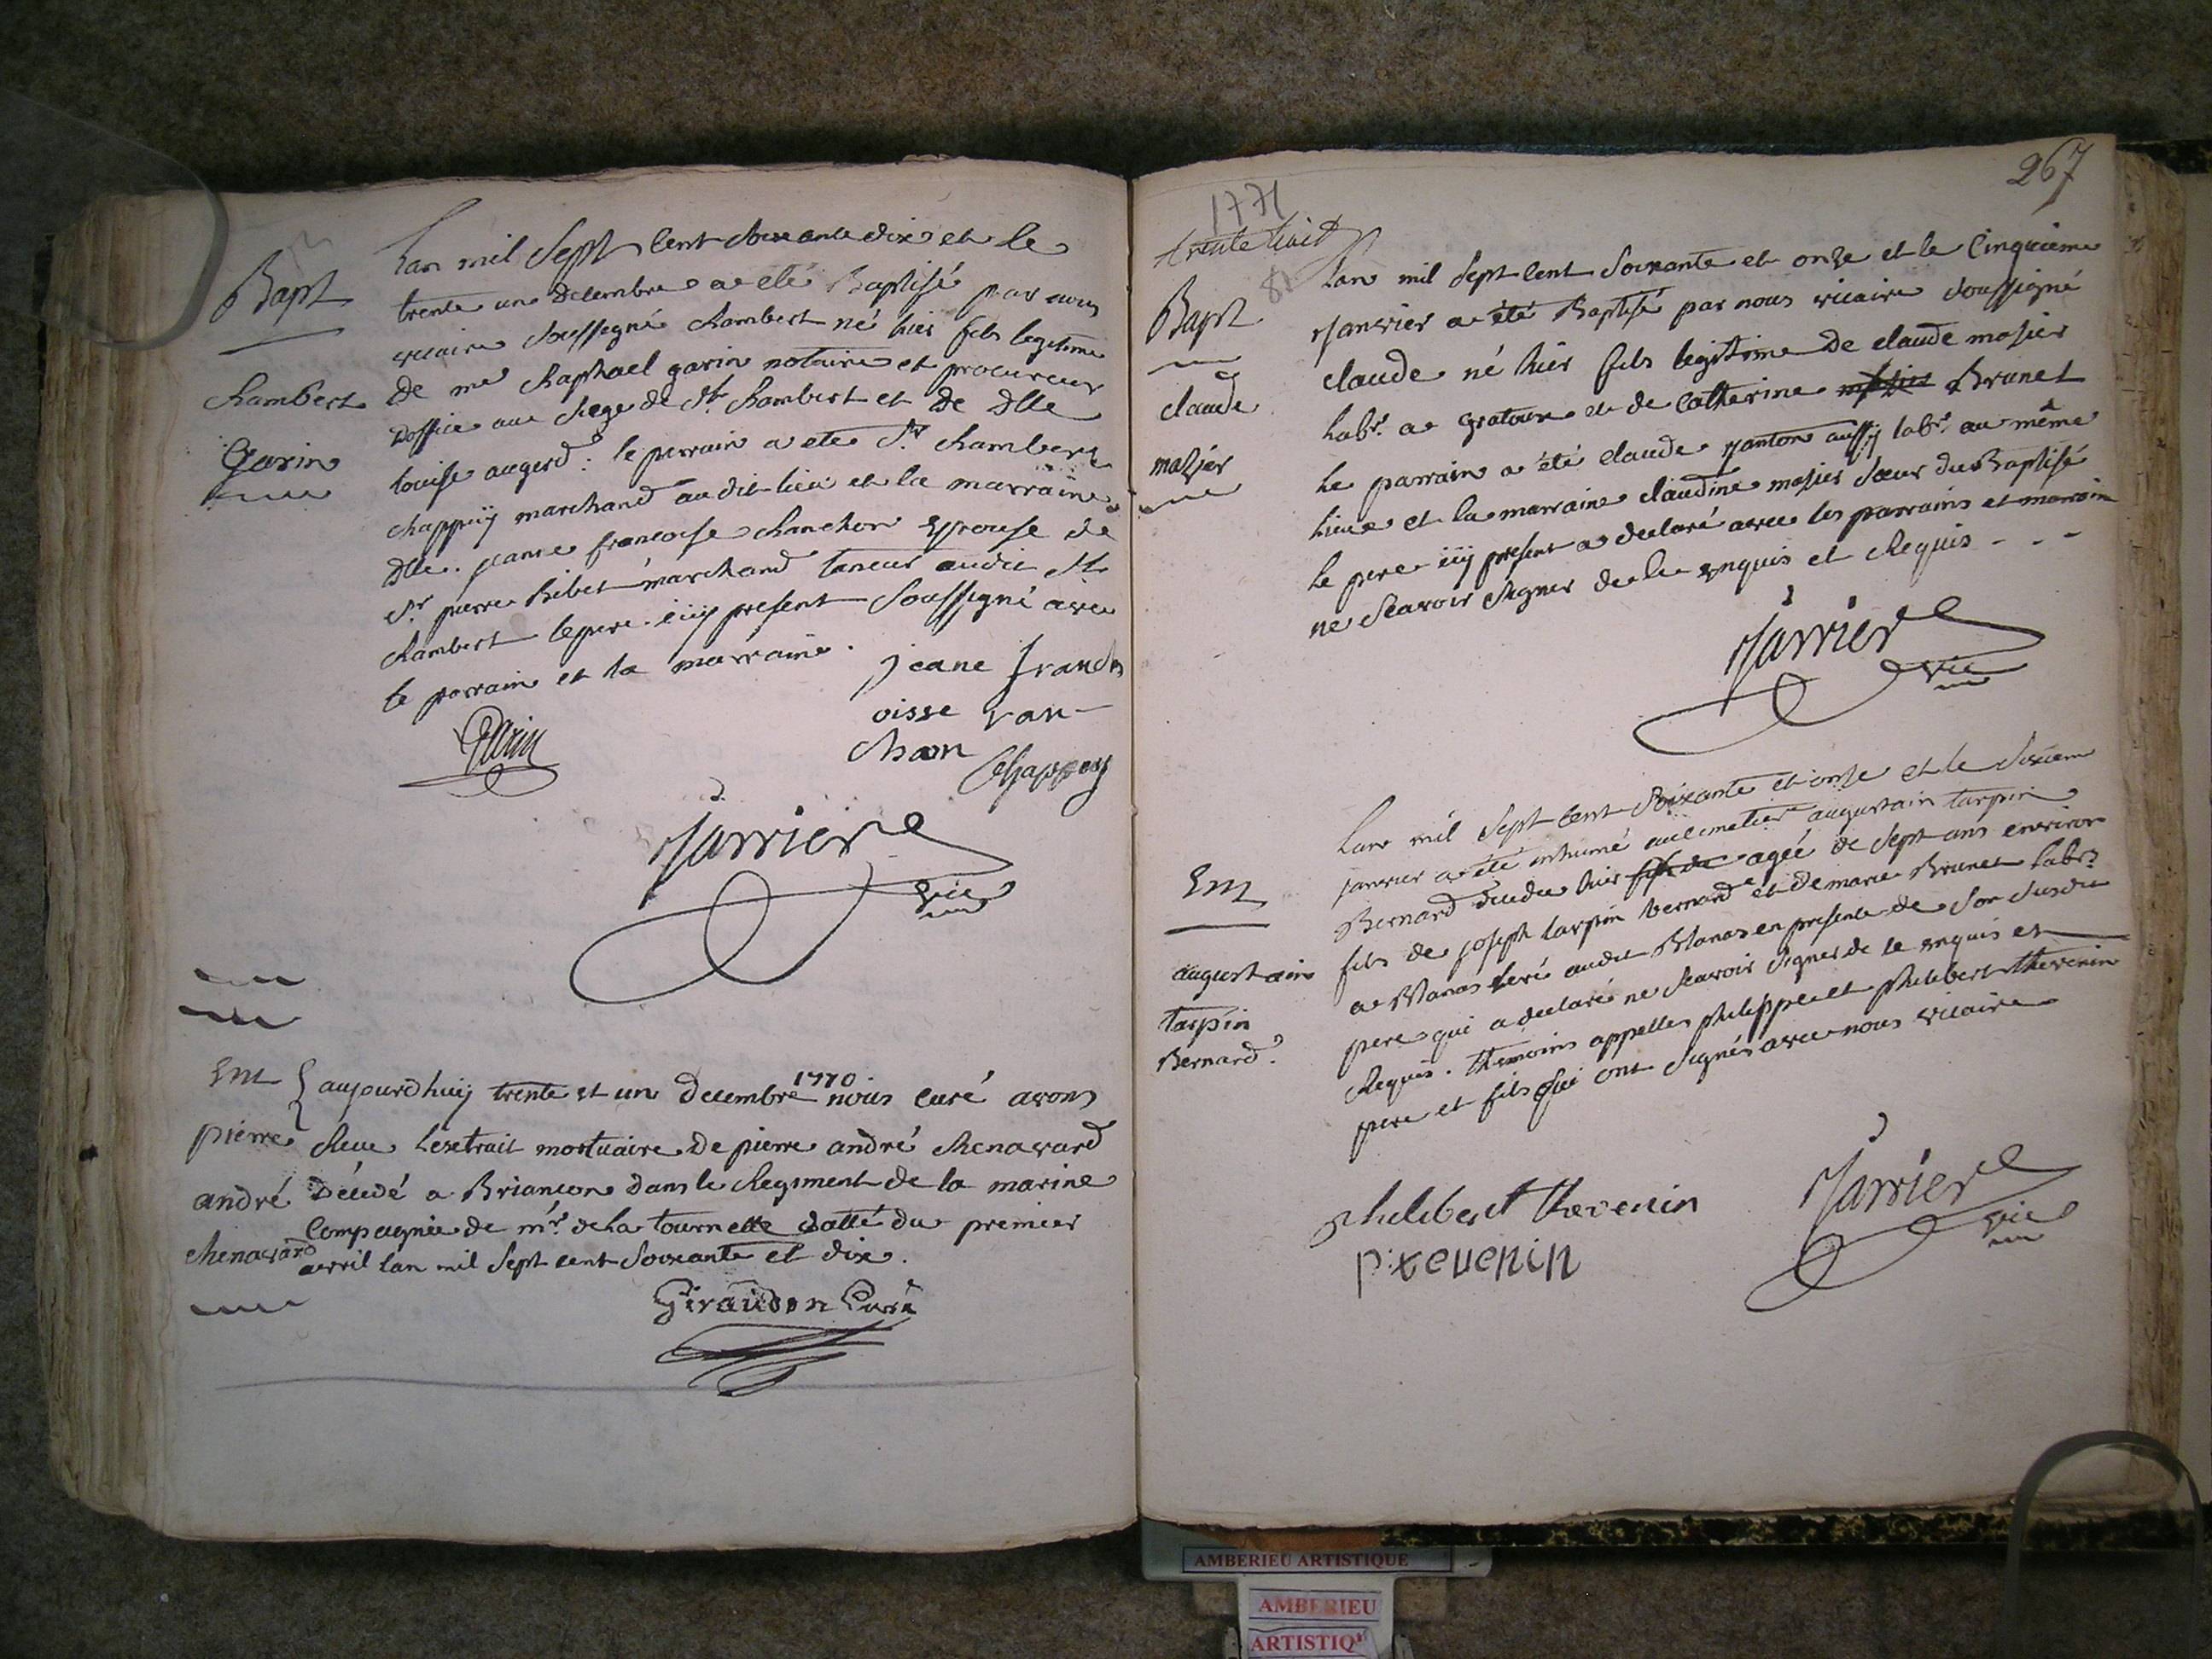 Bapt
Rambert
Garin
Lan mil Sept Cent Soixante dix et le
trente un decembre a été Baptisé par nous
vicaire Soussigné Rambert né hier fils legitime
de me Raphael garin notaire et procureur
Doffice au Siege de St. Rambert et de Dlle
louise augerd : le parrain a ete Sr. Rambert
chappuy marchand audit lieu et la marraine
Dlle. jeanne françoise Ranchon Epouse de
Sr. pierre Bibet marchand taneur audit St
Rambert le pere icy present Soussigné avec
le parrain et la marraine.
jeane franch
oisse ran-
chon
Garin
Chappuy
Jarrier
vic
Em
pierre
andré
chenavard
aujourdhuy trente et un decembre 1770. nous curé avons
Reçu lextrait mortuaire de pierre andré chenavard
Décedé a Briançon dans le Regiment de la marine
Compagnie de mr. de la tournelle datté du premier
avril lan mil Sept cent Soixante et dix.
Giraudon Curé
267
1771
trente huit
Bapt
claude
mazier
Lan mil Sept Cent Soixante et onze et le Cinquieme
Janvier a été Baptisé par nous vicaire Soussigné
claude né hier fils legitime de claude mosier
labr. a gratoux et de Catherine Brunet
Le parrain a été claude janton aussy labr. au même
lieu et la marraine claudine mosier Sœur du Baptisé
le pere icy present a declaré avec les parrains et marraine
ne Scavoir Signer de ce enquis et Requis - - -
Jarrier
vic
Em
augustain
tarpin
Bernard.
Lan mil Sept Cent Soixante et onze et le Sixiem
janvier a été inhumé au cimetier augustain tarpin
Bernard decedé hier fils de agée de Sept ans environ
fils de joseph tarpin bernard et de marie Brunet labr.
a Blanas levé audit Blanas en presence de Son Susdit
pere qui a declaré ne Scavoir Signer de ce enquis et
Requis. themoins appelles philippe et philibert thevenin
pere et fils qui ont Signés avec nous vicaire
philibert thevenin
p: tevenin
Jarrier
vic
AMBERIEU ARTISTIQUE
AMBERIEU
ARTISTIQ